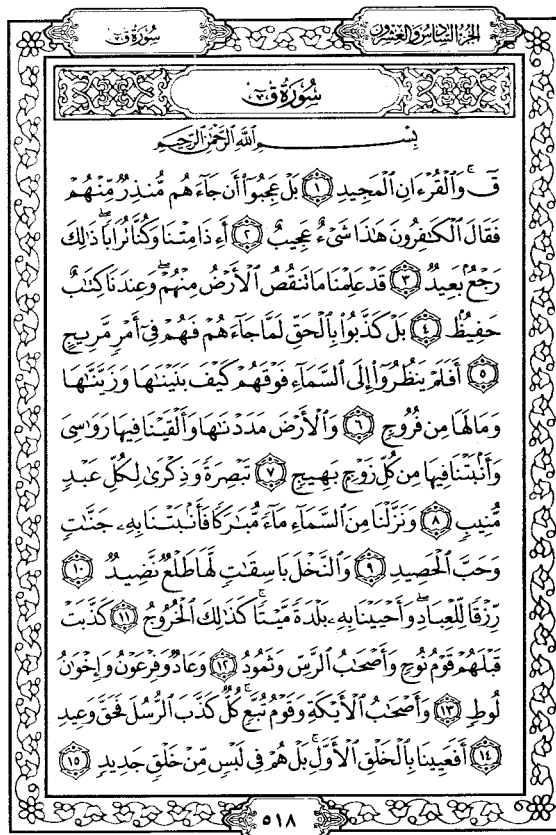 الجزء السادس والعشرون
سورة ق
سورة ق
بسم الله الرحمن الرحيم
قٓۚ وَٱلْقُرْءَانِ ٱلْمَجِيدِ ١ بَلْ عَجِبُوٓا۟ أَن جَآءَهُم مُّنذِرٌ مِّنْهُمْ
فَقَالَ ٱلْكَٰفِرُونَ هَٰذَا شَىْءٌ عَجِيبٌ ٢ أَءِذَا مِتْنَا وَكُنَّا تُرَابًاۖ ذَٰلِكَ
رَجْعٌۢ بَعِيدٌ ٣ قَدْ عَلِمْنَا مَا تَنقُصُ ٱلْأَرْضُ مِنْهُمْۖ وَعِندَنَا كِتَٰبٌ
حَفِيظٌۢ ٤ بَلْ كَذَّبُوا۟ بِٱلْحَقِّ لَمَّا جَآءَهُمْ فَهُمْ فِىٓ أَمْرٍ مَّرِيجٍ
٥ أَفَلَمْ يَنظُرُوٓا۟ إِلَى ٱلسَّمَآءِ فَوْقَهُمْ كَيْفَ بَنَيْنَٰهَا وَزَيَّنَّٰهَا
وَمَا لَهَا مِن فُرُوجٍ ٦ وَٱلْأَرْضَ مَدَدْنَٰهَا وَأَلْقَيْنَا فِيهَا رَوَٰسِىَ
وَأَنۢبَتْنَا فِيهَا مِن كُلِّ زَوْجٍۭ بَهِيجٍ ٧ تَبْصِرَةً وَذِكْرَىٰ لِكُلِّ عَبْدٍ
مُّنِيبٍ ٨ وَنَزَّلْنَا مِنَ ٱلسَّمَآءِ مَآءً مُّبَٰرَكًا فَأَنۢبَتْنَا بِهِۦ جَنَّٰتٍ
وَحَبَّ ٱلْحَصِيدِ ٩ وَٱلنَّخْلَ بَاسِقَٰتٍ لَّهَا طَلْعٌ نَّضِيدٌ ١٠
رِّزْقًا لِّلْعِبَادِۖ وَأَحْيَيْنَا بِهِۦ بَلْدَةً مَّيْتًاۚ كَذَٰلِكَ ٱلْخُرُوجُ ١١ كَذَّبَتْ
قَبْلَهُمْ قَوْمُ نُوحٍ وَأَصْحَٰبُ ٱلرَّسِّ وَثَمُودُ ١٢ وَعَادٌ وَفِرْعَوْنُ وَإِخْوَٰنُ
لُوطٍ ١٣ وَأَصْحَٰبُ ٱلْأَيْكَةِ وَقَوْمُ تُبَّعٍۚ كُلٌّ كَذَّبَ ٱلرُّسُلَ فَحَقَّ وَعِيدِ
١٤ أَفَعَيِينَا بِٱلْخَلْقِ ٱلْأَوَّلِۚ بَلْ هُمْ فِى لَبْسٍ مِّنْ خَلْقٍ جَدِيدٍ ١٥
٥١٨